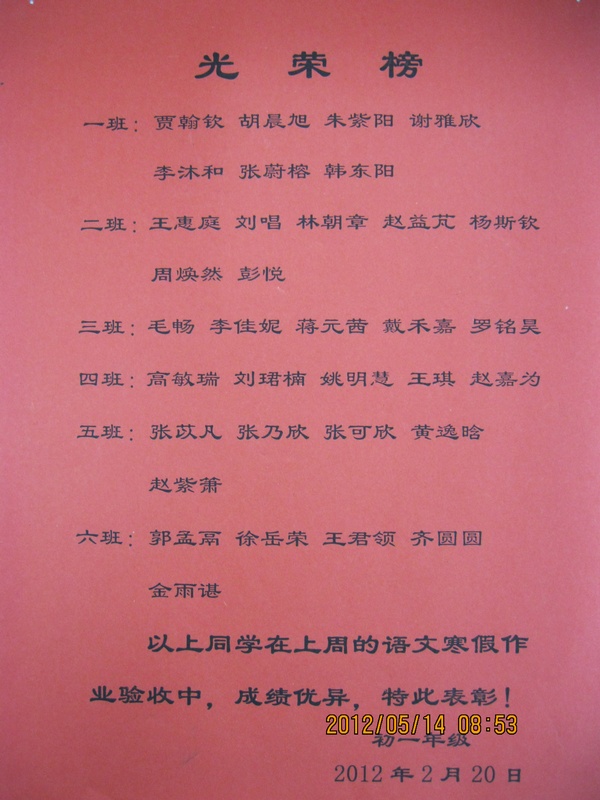 光荣榜
一班：贾翰钦 胡晨旭 朱紫阳 谢雅欣
李沐和 张蔚榕 韩东阳
二班：王惠庭 刘唱 林朝章 赵益芃 杨斯钦
周焕然 彭悦
三班：毛畅 李佳妮 蒋元茜 戴禾嘉 罗铭昊
四班：高敏瑞 刘珺楠 姚明慧 王琪 赵嘉为
五班：张苡凡 张乃欣 张可欣 黄逸晗
赵紫萧
六班：郭孟鬲 徐岳荣 王君领 齐圆圆
金雨谌
以上同学在上周的语文寒假作
业验收中，成绩优异，特此表彰！
2012/05/14 08:53
初一年级
2012年2月20日